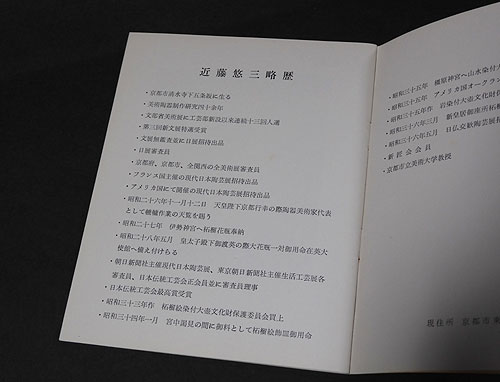 近藤悠三略歴
・京都市清水寺下五条坂に生る
・美術陶器制作研究四十余年
・文部省美術展に工芸部新設以来連続十三回入選
・第三回新文展特選受賞
・文展無鑑査並に日展招待出品
・日展審査員
・京都府、京都市、全関西の全美術展審査員
・フランス国主催の現代日本陶芸展招待出品
・アメリカ国にて開催の現代日本陶芸展招待出品
・昭和二十六年十一月十二日 天皇陛下京都行幸の際陶器美術家代表
として轆轤作業の天覧を賜う
・昭和二十七年 伊勢神宮へ柘榴花瓶奉納
・昭和二十八年五月 皇太子殿下御渡英の際大花瓶一対御用命在英大
使館へ備え付けらる
・朝日新聞社主催現代日本陶芸展、東京朝日新聞社主催生活工芸展各
審査員、日本伝統工芸会正会員並に審査員理事
・日本伝統工芸会最高賞受賞
・昭和三十三年作 柘榴絵染付大壺文化財保護委員会買上
・昭和三十四年一月 宮中謁見の間に御料として柘榴絵飾皿御用命
・昭和三十五年 橿原神宮へ山水染付大
・昭和三十五年 アメリカ国オークラン
・昭和三十五年作 岩染付大壺文化財保
・昭和三十六年三月 新皇居御南所柘榴
・昭和三十六年五月 日仏交歓陶芸展招
・新匠会会員
・京都市立美術大学教授
現住所 京都市東